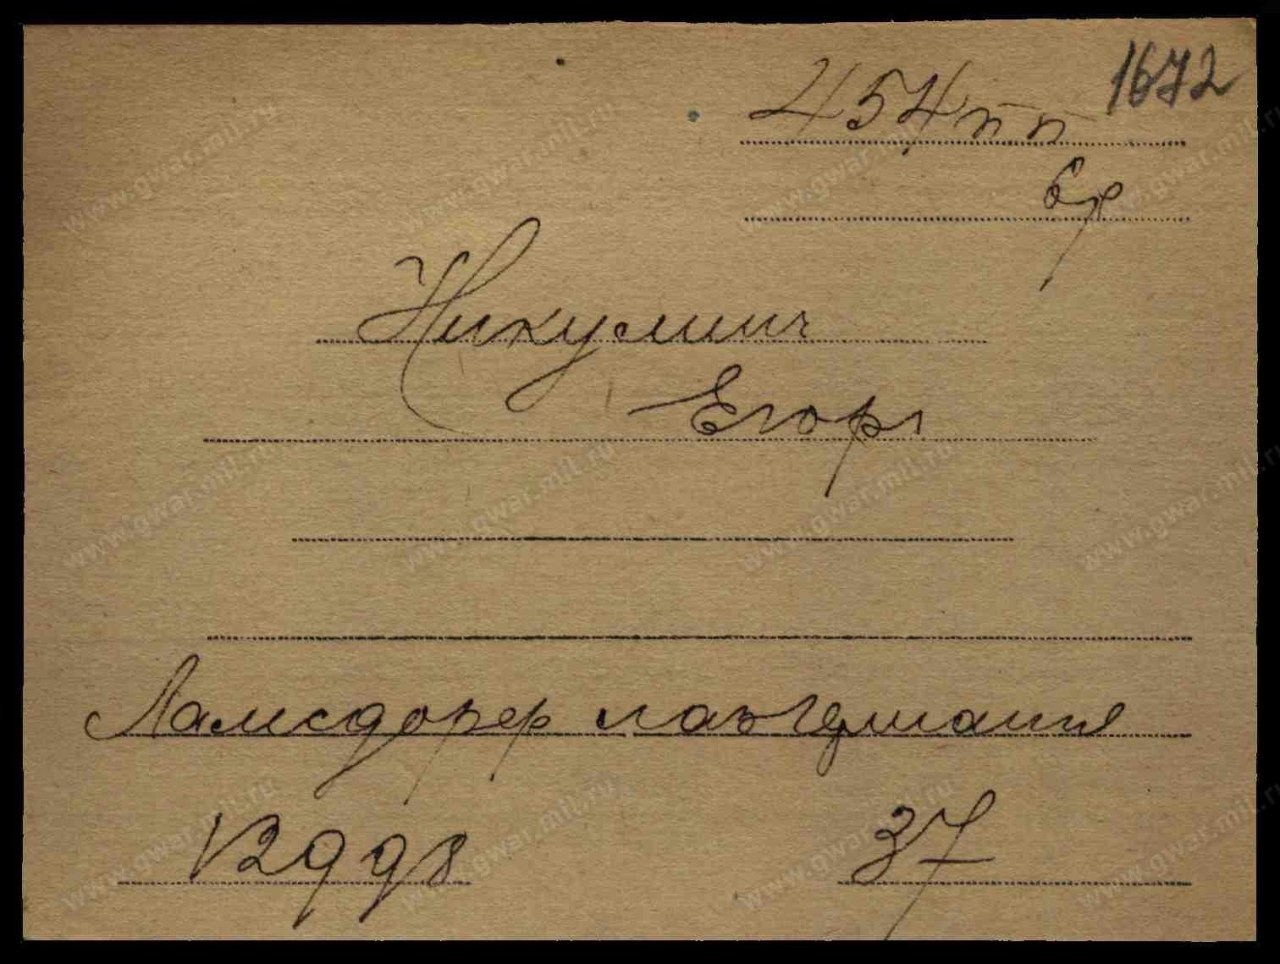 1672
454 пп
бр
Никулин
Егор
Ламсдорф лаз Германия
12998
37
www.gwar.mil.ru